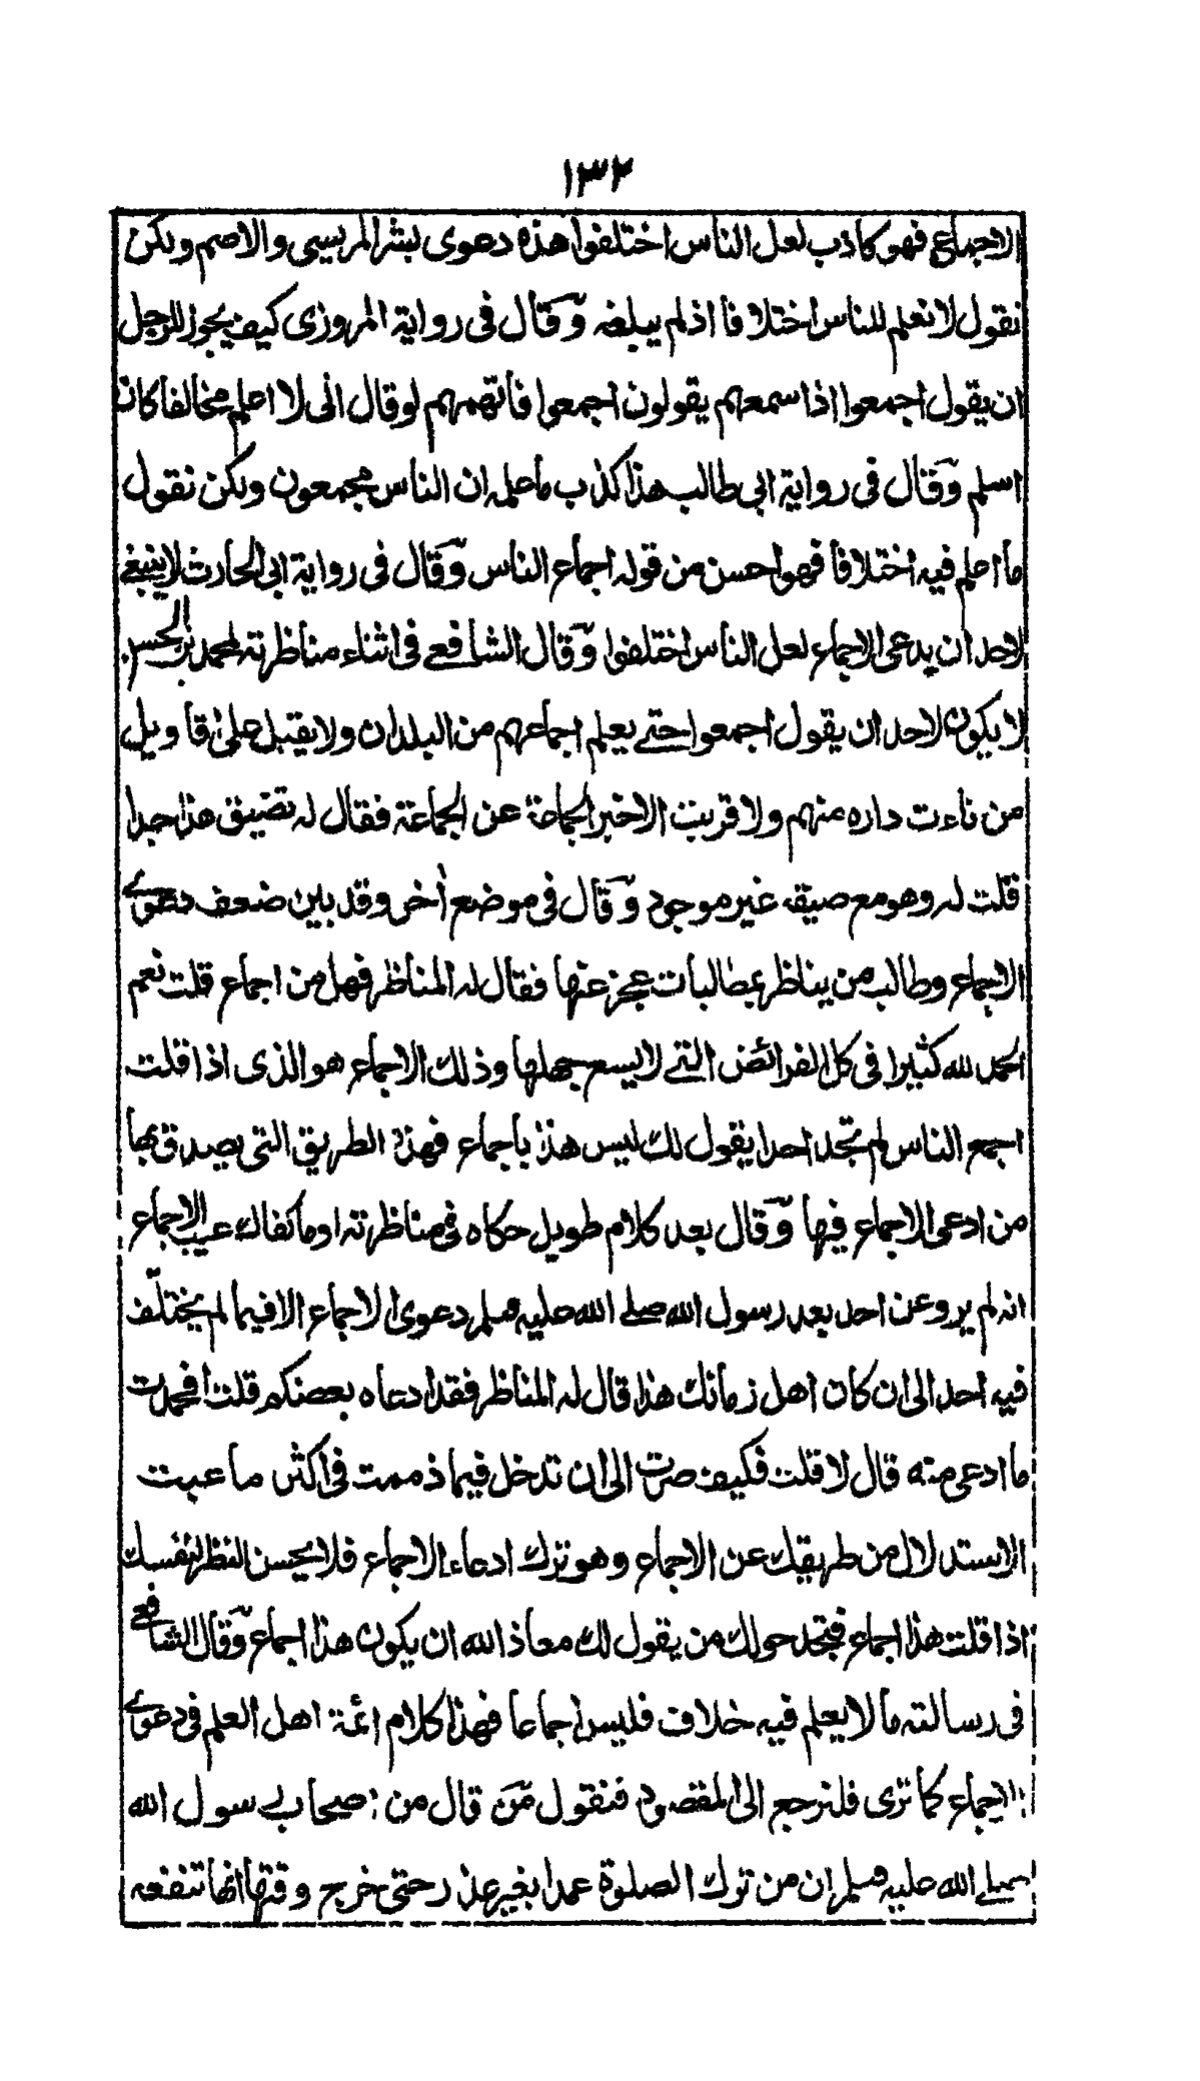 ١٣٢
الاجماع فهو كاذب لعل الناس اختلفوا هذه دعوى بشر المريسي والاصم ولكن
نقول لا نعلم للناس اختلافا اذ لم يبلغه وقال فى رواية المروزى كيف يجوز للرجل
ان يقول اجمعوا اذا سمعهم يقولون اجمعوا فاتهمهم لو قال انى لا اعلم مخالفا كان
اسلم وقال فى رواية ابى طالب هذا كذب ما علمه ان الناس مجمعون ولكن نقول
ما اعلم فيه اختلافا فهو احسن من قوله اجماع الناس وقال فى رواية ابى الحارث لا ينبغى
لاحد ان يدعى الاجماع لعل الناس اختلفوا وقال الشافعے فى اثناء مناظرته لمحمد بن الحسن
لا يكون لاحد ان يقول اجمعوا حتے يعلم اجماعهم من البلدان ولا يقبل على اقاويل
من ناءت داره منهم ولا قربت الا خبر الجماعة عن الجماعة فقال له تضيق هذا جدا
قلت له وهو مع ضيقه غير موجود وقال فى موضع أخر وقد بين ضعف دعوے
الاجماع وطالب من يناظر بمطالبات عجز عنها فقال له المناظر فهل من اجماع قلت نعم
الحمد لله كثيرا فى كل الفرائض التے لا يسع جهلها وذلك الاجماع هو الذى اذا قلت
اجمع الناس لم تجد احدا يقول لك ليس هذا باجماع فهذه الطريق التى يصدق بها
من ادعى الاجماع فيها وقال بعد كلام طويل حكاه فى مناظرته اوما كفاك عيب الاجماع
انه لم يرو عن احد بعد رسول الله صلے الله عليه وسلم دعوى الاجماع الا فيما لم يختلف
فيه احد الى ان كان اهل زمانك هذا قال له المناظر فقد ادعاه بعضكم قلت افحمدت
ما ادعى منه قال لا قلت فكيف صرت الى ان تدخل فيما ذممت فى اكثر ما عبت
الاستدلال من طريقك عن الاجماع وهو ترك ادعاء الاجماع فلا يحسن النظر لنفسك
اذا قلت هذا اجماع فتجد حولك من يقول لك معاذ الله ان يكون هذا اجماع وقال الشافعے
فى رسالته ما لا يعلم فيه خلاف فليس اجماعا فهذا كلام ائمة اهل العلم فى دعوے
الاجماع كما ترى فلنرجع الى المقصود فنقول من قال من اصحاب رسول الله
صلے الله عليه وسلم ان من ترك الصلوة عمدا بغير عذر حتى خرج وقتها انها تنفعه